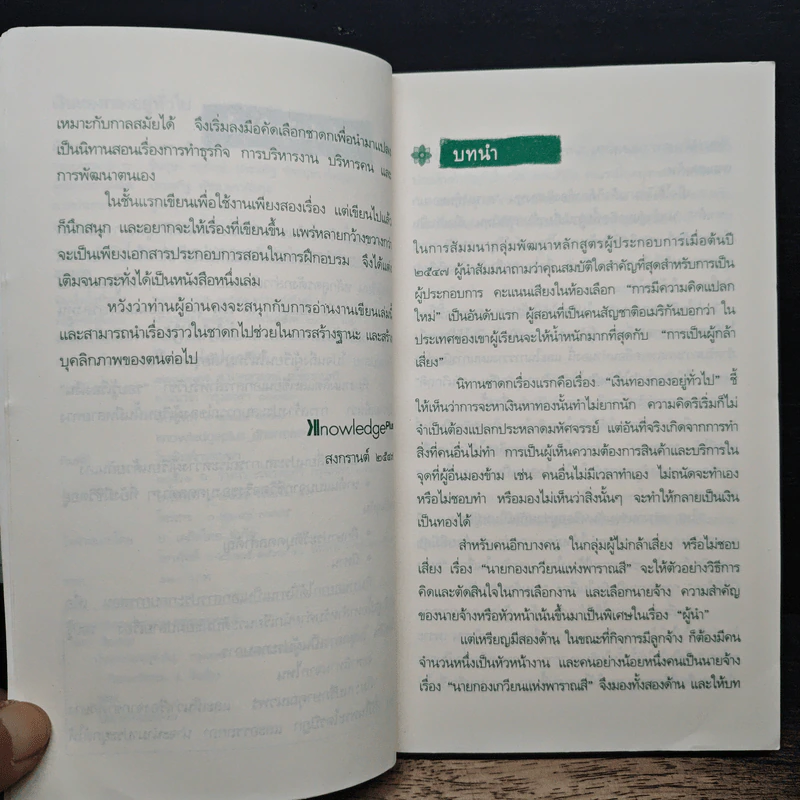 เหมาะกับกาลสมัยได้ จึงเริ่มลงมือคัดเลือกชาดกเพื่อนำมาแปลง
เป็นนิทานสอนเรื่องการทำธุรกิจ การบริหารงาน บริหารคน และ
การพัฒนาตนเอง
ในชั้นแรกเขียนเพื่อใช้งานเพียงสองเรื่อง แต่เขียนไปแล้ว
ก็นึกสนุก และอยากจะให้เรื่องที่เขียนขึ้น แพร่หลายกว้างขวางกว่า
จะเป็นเพียงเอกสารประกอบการสอนในการฝึกอบรม จึงได้แต่ง
เติมจนกระทั่งได้เป็นหนังสือหนึ่งเล่ม
หวังว่าท่านผู้อ่านคงจะสนุกกับการอ่านงานเขียนเล่มนี้
และสามารถนำเรื่องราวในชาดกไปช่วยในการสร้างฐานะ และสร้าง
บุคลิกภาพของตนต่อไป
Knowledge Plus
สงกรานต์
บทนำ
ในการสัมมนากลุ่มพัฒนาหลักสูตรผู้ประกอบการเมื่อต้นปี
๒๕๔๗ ผู้นำสัมมนาถามว่าคุณสมบัติใดสำคัญที่สุดสำหรับการเป็น
ผู้ประกอบการ คะแนนเสียงในห้องเลือก “การมีความคิดแปลก
ใหม่” เป็นอันดับแรก ผู้สอนที่เป็นคนสัญชาติอเมริกันบอกว่า ใน
ประเทศของเขาผู้เรียนจะให้น้ำหนักมากที่สุดกับ “การเป็นผู้กล้า
เสี่ยง”
นิทานชาดกเรื่องแรกคือเรื่อง “เงินทองกองอยู่ทั่วไป” ชี้
ให้เห็นว่าการจะหาเงินหาทองนั้นทำไม่ยากนัก ความคิดริเริ่มก็ไม่
จำเป็นต้องแปลกประหลาดมหัศจรรย์ แต่อันที่จริงเกิดจากการทำ
สิ่งที่คนอื่นไม่ทำ การเป็นผู้เห็นความต้องการสินค้าและบริการใน
จุดที่ผู้อื่นมองข้าม เช่น คนอื่นไม่มีเวลาทำเอง ไม่ถนัดจะทำเอง
หรือไม่ชอบทำ หรือมองไม่เห็นว่าสิ่งนั้นๆ จะทำให้กลายเป็นเงิน
เป็นทองได้
สำหรับคนอีกบางคน ในกลุ่มผู้ไม่กล้าเสี่ยง หรือไม่ชอบ
เสี่ยง เรื่อง “นายกองเกวียนแห่งพาราณสี” จะให้ตัวอย่างวิธีการ
คิดและตัดสินใจในการเลือกงาน และเลือกนายจ้าง ความสำคัญ
ของนายจ้างหรือหัวหน้าเน้นขึ้นมาเป็นพิเศษในเรื่อง “ผู้นำ”
แต่เหรียญมีสองด้าน ในขณะที่กิจการมีลูกจ้าง ก็ต้องมีคน
จำนวนหนึ่งเป็นหัวหน้างาน และคนอย่างน้อยหนึ่งคนเป็นนายจ้าง
เรื่อง “นายกองเกวียนแห่งพาราณสี” จึงมองทั้งสองด้าน และให้บท